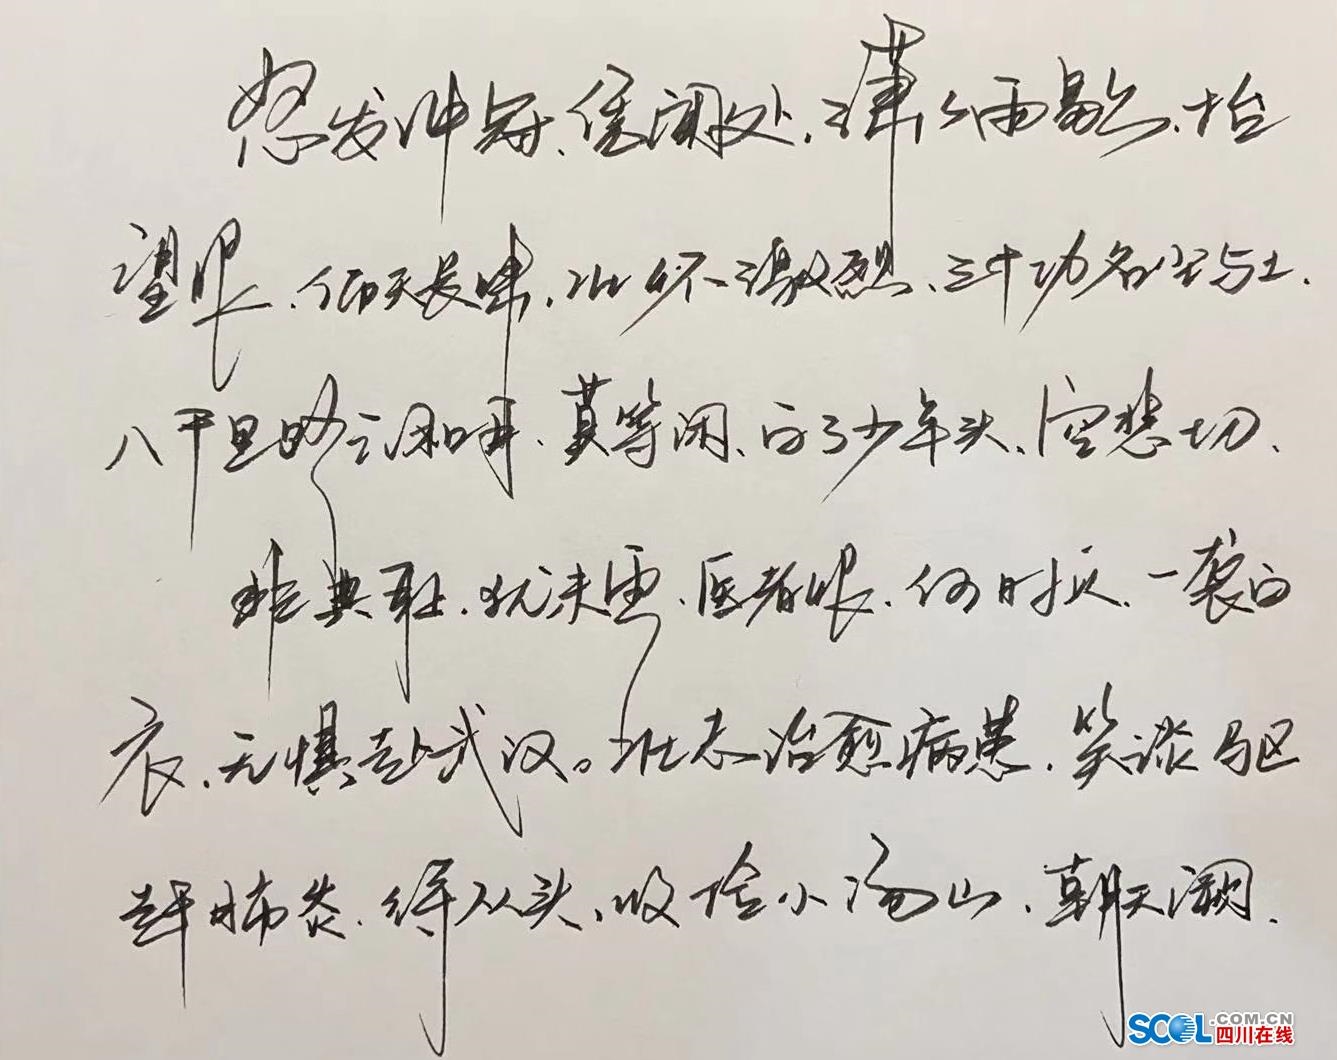 怒发冲冠、凭阑处、潇潇雨歇、抬
望眼、仰天长啸、壮怀激烈、三十功名尘与土、
八千里路云和月、莫等闲、白了少年头、空悲切、
非典耻、犹未雪、医者恨、何时灭、一袭白
衣、无惧赴武汉。壮志治愈病患、笑谈驱
赶肺炎、待从头、收拾小汤山、朝天阙、
SCOL.COM.CN
四川在线